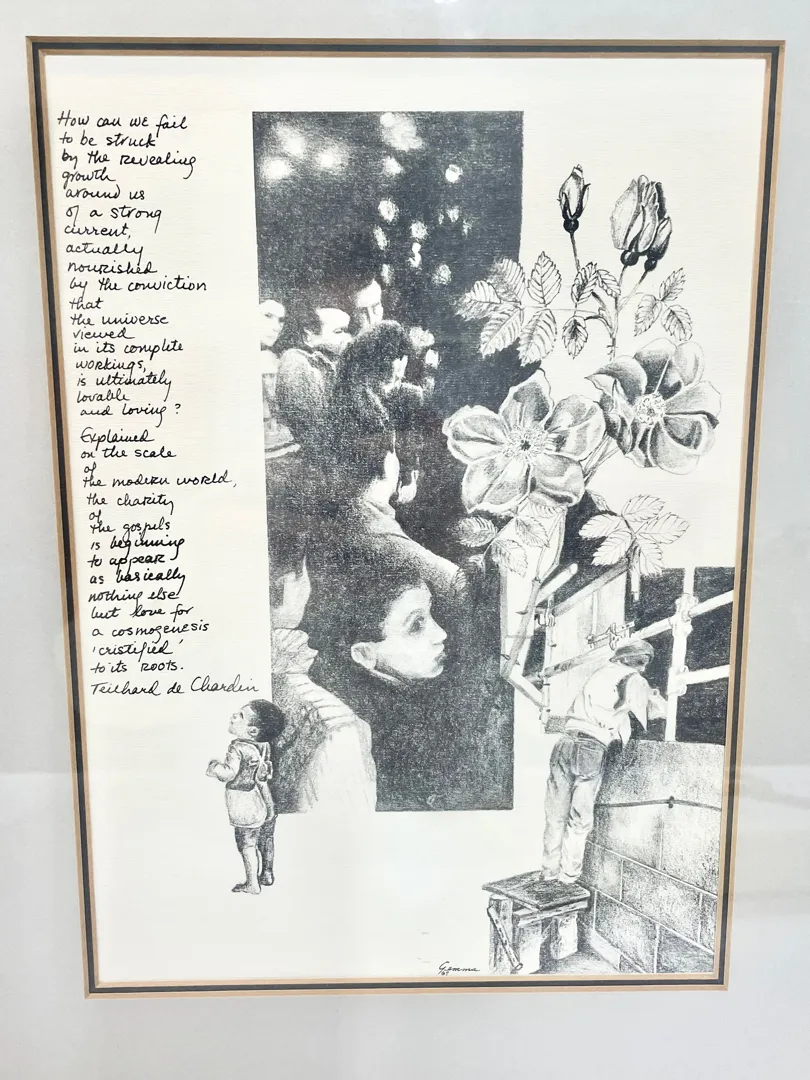 How can we fail
to be struck
by the revealing
growth
around us
of a strong
current,
actually
nourished
by the conviction
that
the universe
viewed
in its complete
workings,
is ultimately
lovable
and loving?
Explained
on the scale
of
the modern world,
the charity
of
the gospels
is beginning
to appear
as basically
nothing else
but love for
a cosmogenesis
'cristified'
to its roots.
Teilhard de Chardin
Gamma